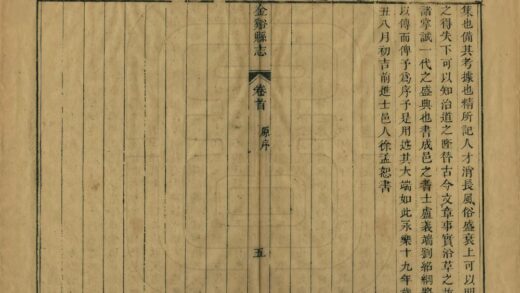 集也備其考據也精所記人才消長風俗盛衰上可以明
之得失下可以知治道之隆替古今文章事實沿革之
諸掌誠一代之盛典也書成邑之耆士盧義端劉紹綱
以傳而俾予爲序予是用述其大端如此永樂十九年歲
丑八月初吉前進士邑人徐孟恕書
金谿縣志
卷首
原序
五